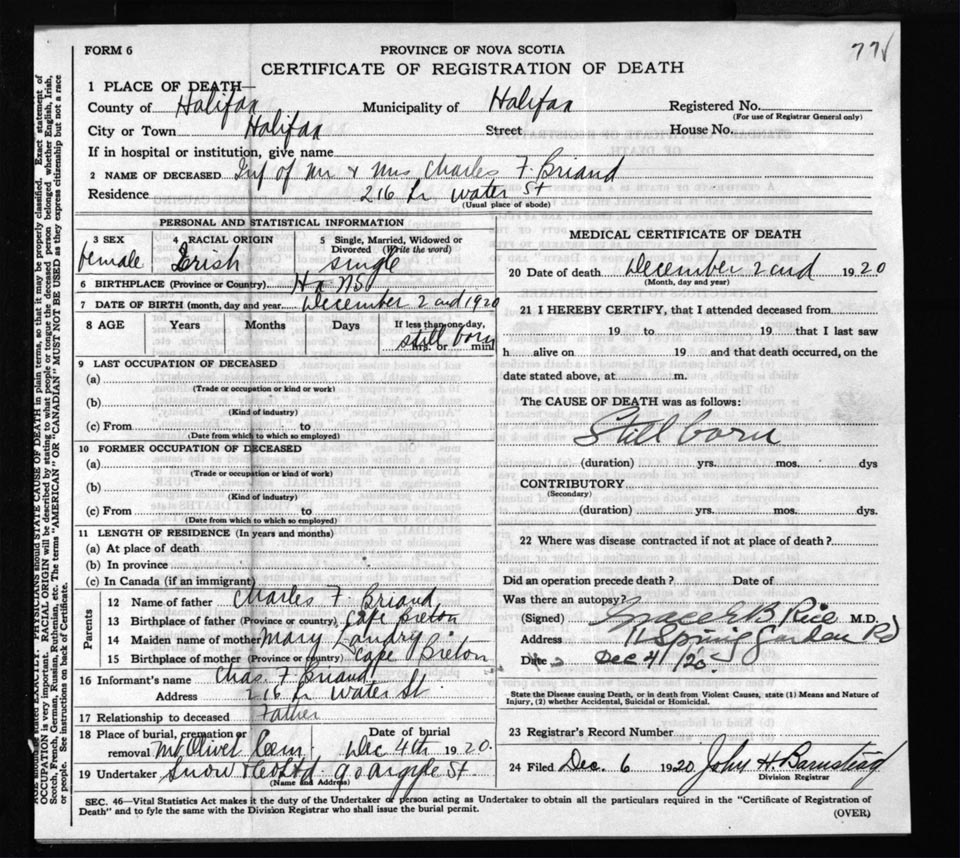 FORM 6
PROVINCE OF NOVA SCOTIA
CERTIFICATE OF REGISTRATION OF DEATH
77
1 PLACE OF DEATH—
County of Halifax Municipality of Halifax Registered No.
(For use of Registrar General only)
City or Town Halifax Street House No.
If in hospital or institution, give name
2 NAME OF DECEASED Inf of Mr. & Mrs Charles F. Briand
Residence 216 Lr Water St
(Usual place of abode)
PERSONAL AND STATISTICAL INFORMATION
3 SEX 4 RACIAL ORIGIN 5 Single, Married, Widowed or Divorced (Write the word)
female Irish single
6 BIRTHPLACE (Province or Country) Hx NS
7 DATE OF BIRTH (month, day and year) December 2nd 1920
8 AGE Years Months Days If less than one day,
still born
hrs. or min.
9 LAST OCCUPATION OF DECEASED
(a)
(Trade or occupation or kind or work)
(b)
(Kind of industry)
(c) From to
(Date from which to which so employed)
10 FORMER OCCUPATION OF DECEASED
(a)
(Trade or occupation or kind of work)
(b)
(Kind of industry)
(c) From to
(Date from which to which so employed)
11 LENGTH OF RESIDENCE (In years and months)
(a) At place of death
(b) In province
(c) In Canada (if an immigrant)
Parents
12 Name of father Charles F. Briand
13 Birthplace of father (Province or country) Cape Breton
14 Maiden name of mother Mary Landry
15 Birthplace of mother (Province or country) Cape Breton
16 Informant's name Chas. F Briand
Address 216 Lr Water St.
17 Relationship to deceased Father
18 Place of burial, cremation or removal Mt Olivet Cem. Date of burial Dec 4th 1920
19 Undertaker Snow & Co Ltd 90 Argyle St.
(Name and Address)
MEDICAL CERTIFICATE OF DEATH
20 Date of death December 2nd 1920
(Month, day and year)
21 I HEREBY CERTIFY, that I attended deceased from
19 to 19 that I last saw
h alive on 19 and that death occurred, on the
date stated above, at m.
The CAUSE OF DEATH was as follows:
Still born
(duration) yrs. mos. dys
CONTRIBUTORY
(Secondary)
(duration) yrs. mos. dys.
22 Where was disease contracted if not at place of death?
Did an operation precede death? Date of
Was there an autopsy?
(Signed) Grace E B Rice M.D.
Address 11 Spring Garden Rd
Date Dec 4/20
State the Disease causing Death, or in death from Violent Causes, state (1) Means and Nature of
Injury, (2) whether Accidental, Suicidal or Homicidal.
23 Registrar's Record Number
24 Filed Dec. 6 1920 John H. Barnstead
Division Registrar
SEC. 46—Vital Statistics Act makes it the duty of the Undertaker or person acting as Undertaker to obtain all the particulars required in the "Certificate of Registration of
Death" and to fyle the same with the Division Registrar who shall issue the burial permit.
(OVER)
stated EXACTLY. PHYSICIANS should STATE CAUSE OF DEATH in plain terms, so that it may be properly classified. Exact statement of
OCCUPATION is very important. RACIAL ORIGIN will be described by stating to what people or tongue the deceased person belonged whether English, Irish,
Scotch, French, German, Russian, Ruthenian, etc. The terms "AMERICAN" OR "CANADIAN" MUST NOT BE USED as they express citizenship but not a race
or people. See instructions on back of Certificate.